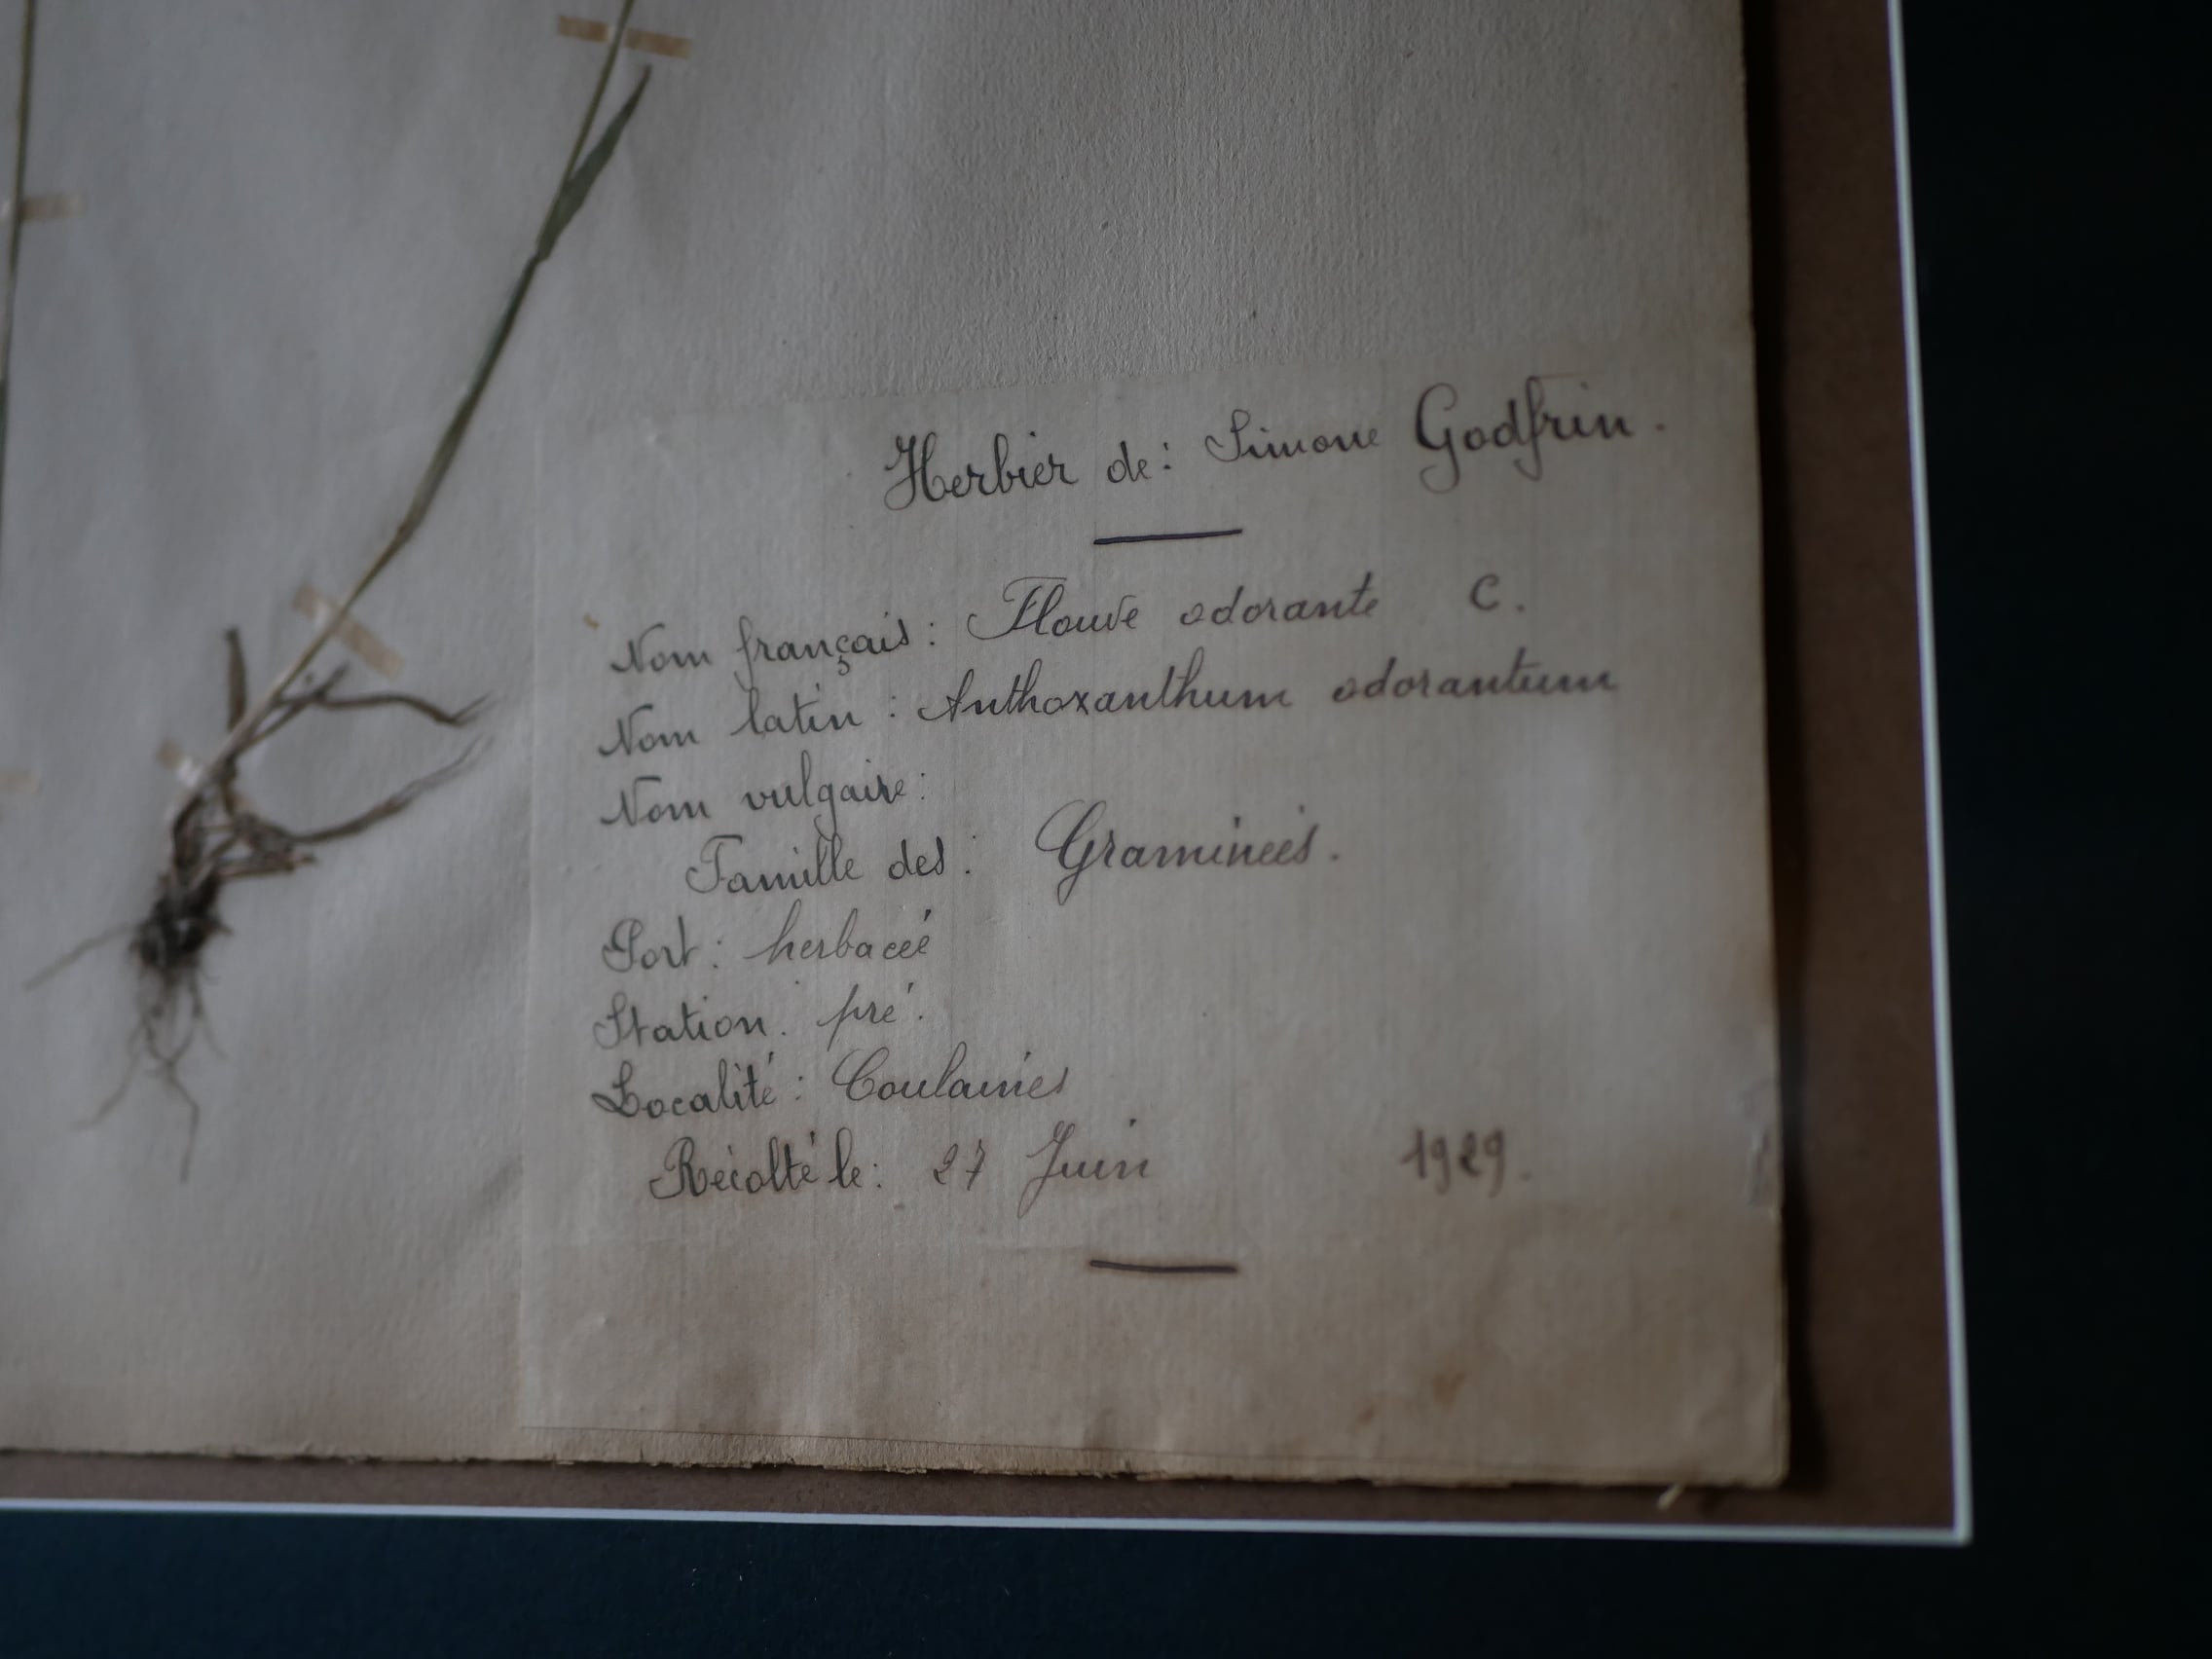 Herbier de : Simone Godfrin.
Nom français : Flouve odorante C.
Nom latin : Anthoxanthum odorantum
Nom vulgaire :
Famille des : Graminées.
Port : herbacée
Station : pré.
Localité : Coulaines
Récolté le : 27 Juin 1929.